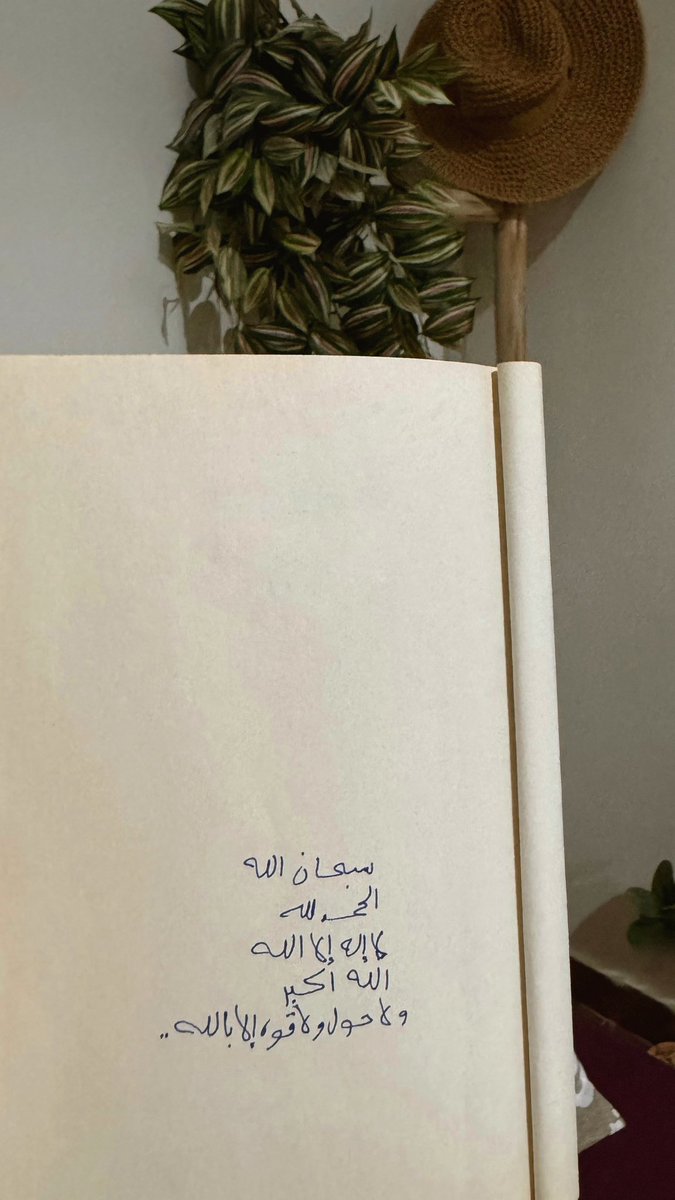 سبحان الله
الحمد لله
لا إله إلا الله
الله أكبر
ولا حول ولا قوه إلا بالله..